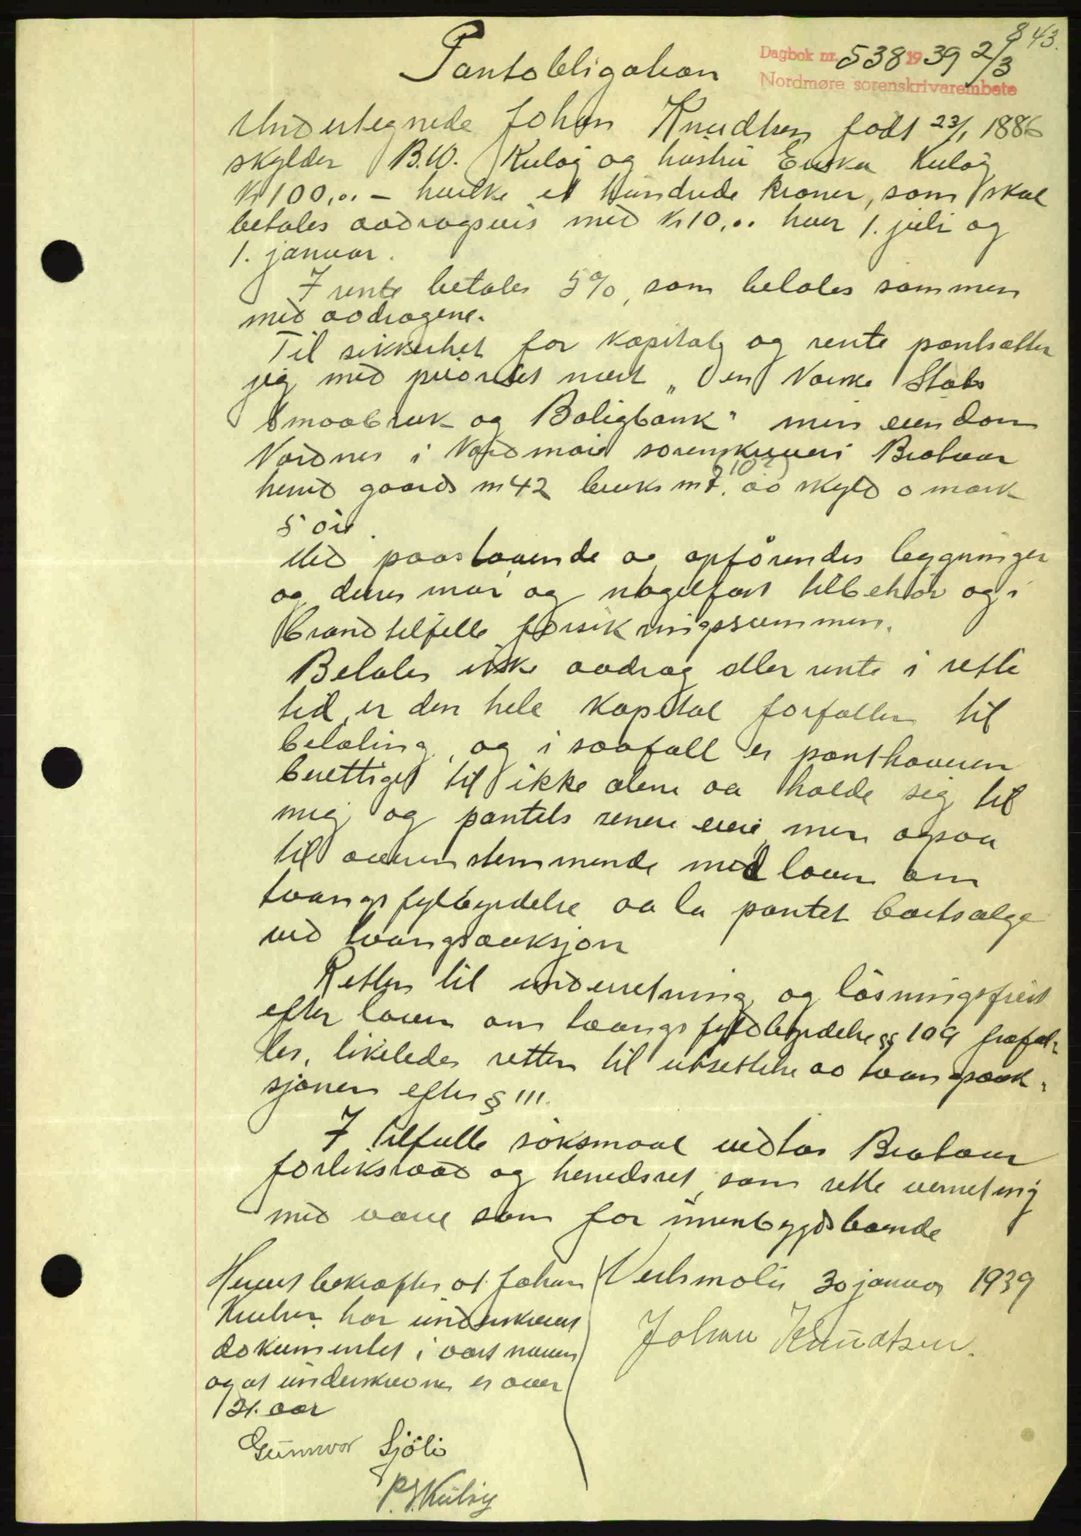 843.
Dagbok nr. 538 1939 2/3
Nordmøre sorenskrivarembete
Pantobligation
Undertegnede Johan Knudtsen født 23/1 1886
skylder B.W. Kuløy og hustru Ericka Kuløy
kr 100,00 – hvilke et hundrede kroner, som skal
betales avdragsvis med kr 10,00 hver 1. juli og
1. januar.
I rente betales 5%, som betales sammen
med avdragene.
Til sikkerhet for kapital og rente pantsætter
jeg med prioritet næst "Den Norske Stats
Smaabruk og Boligbank" min eiendom
Nordnes i Nordmøre sorenskriveri Brattvær
herred gaards nr 42 bruks nr 7. av skyld 0 mark
5 øre
Med paastaaende og opførendes bygninger
og deres mur og nagelfast tilbehør og i
brandtilfelle forsikringssummen.
Betales ikke avdrag eller rente i rette
tid er den hele kapital forfallen til
betaling, og i saafall er panthaveren
berettiget til ikke alene aa holde sig til
mig og pantets senere eier men ogsaa
til overensstemmende med loven om
tvangsfylbyrdelse aa la pantet bortsælge
ved tvangsauksjon
Retten til underretning og løsningsfrist
efter loven om tvangsfyldbyrdelse §§ 109 frafal-
les, likeledes retten til utsettelse av tvangsauk-
sjonen efter § 111.
I tilfelle søksmaal vedtas Brattvær
forliksraad og herredsret som rette verneting
med varsel som for innenbygdsboende
Herved bekræftes at Johan
Knutsen har underskrevet
dokumentet i vort nærvær
og at underskriveren er over
21. aar
Gunnvor Sjøli
P. J. Kuløy
Veidholmen 30 januar 1939
Johan Knudtsen.